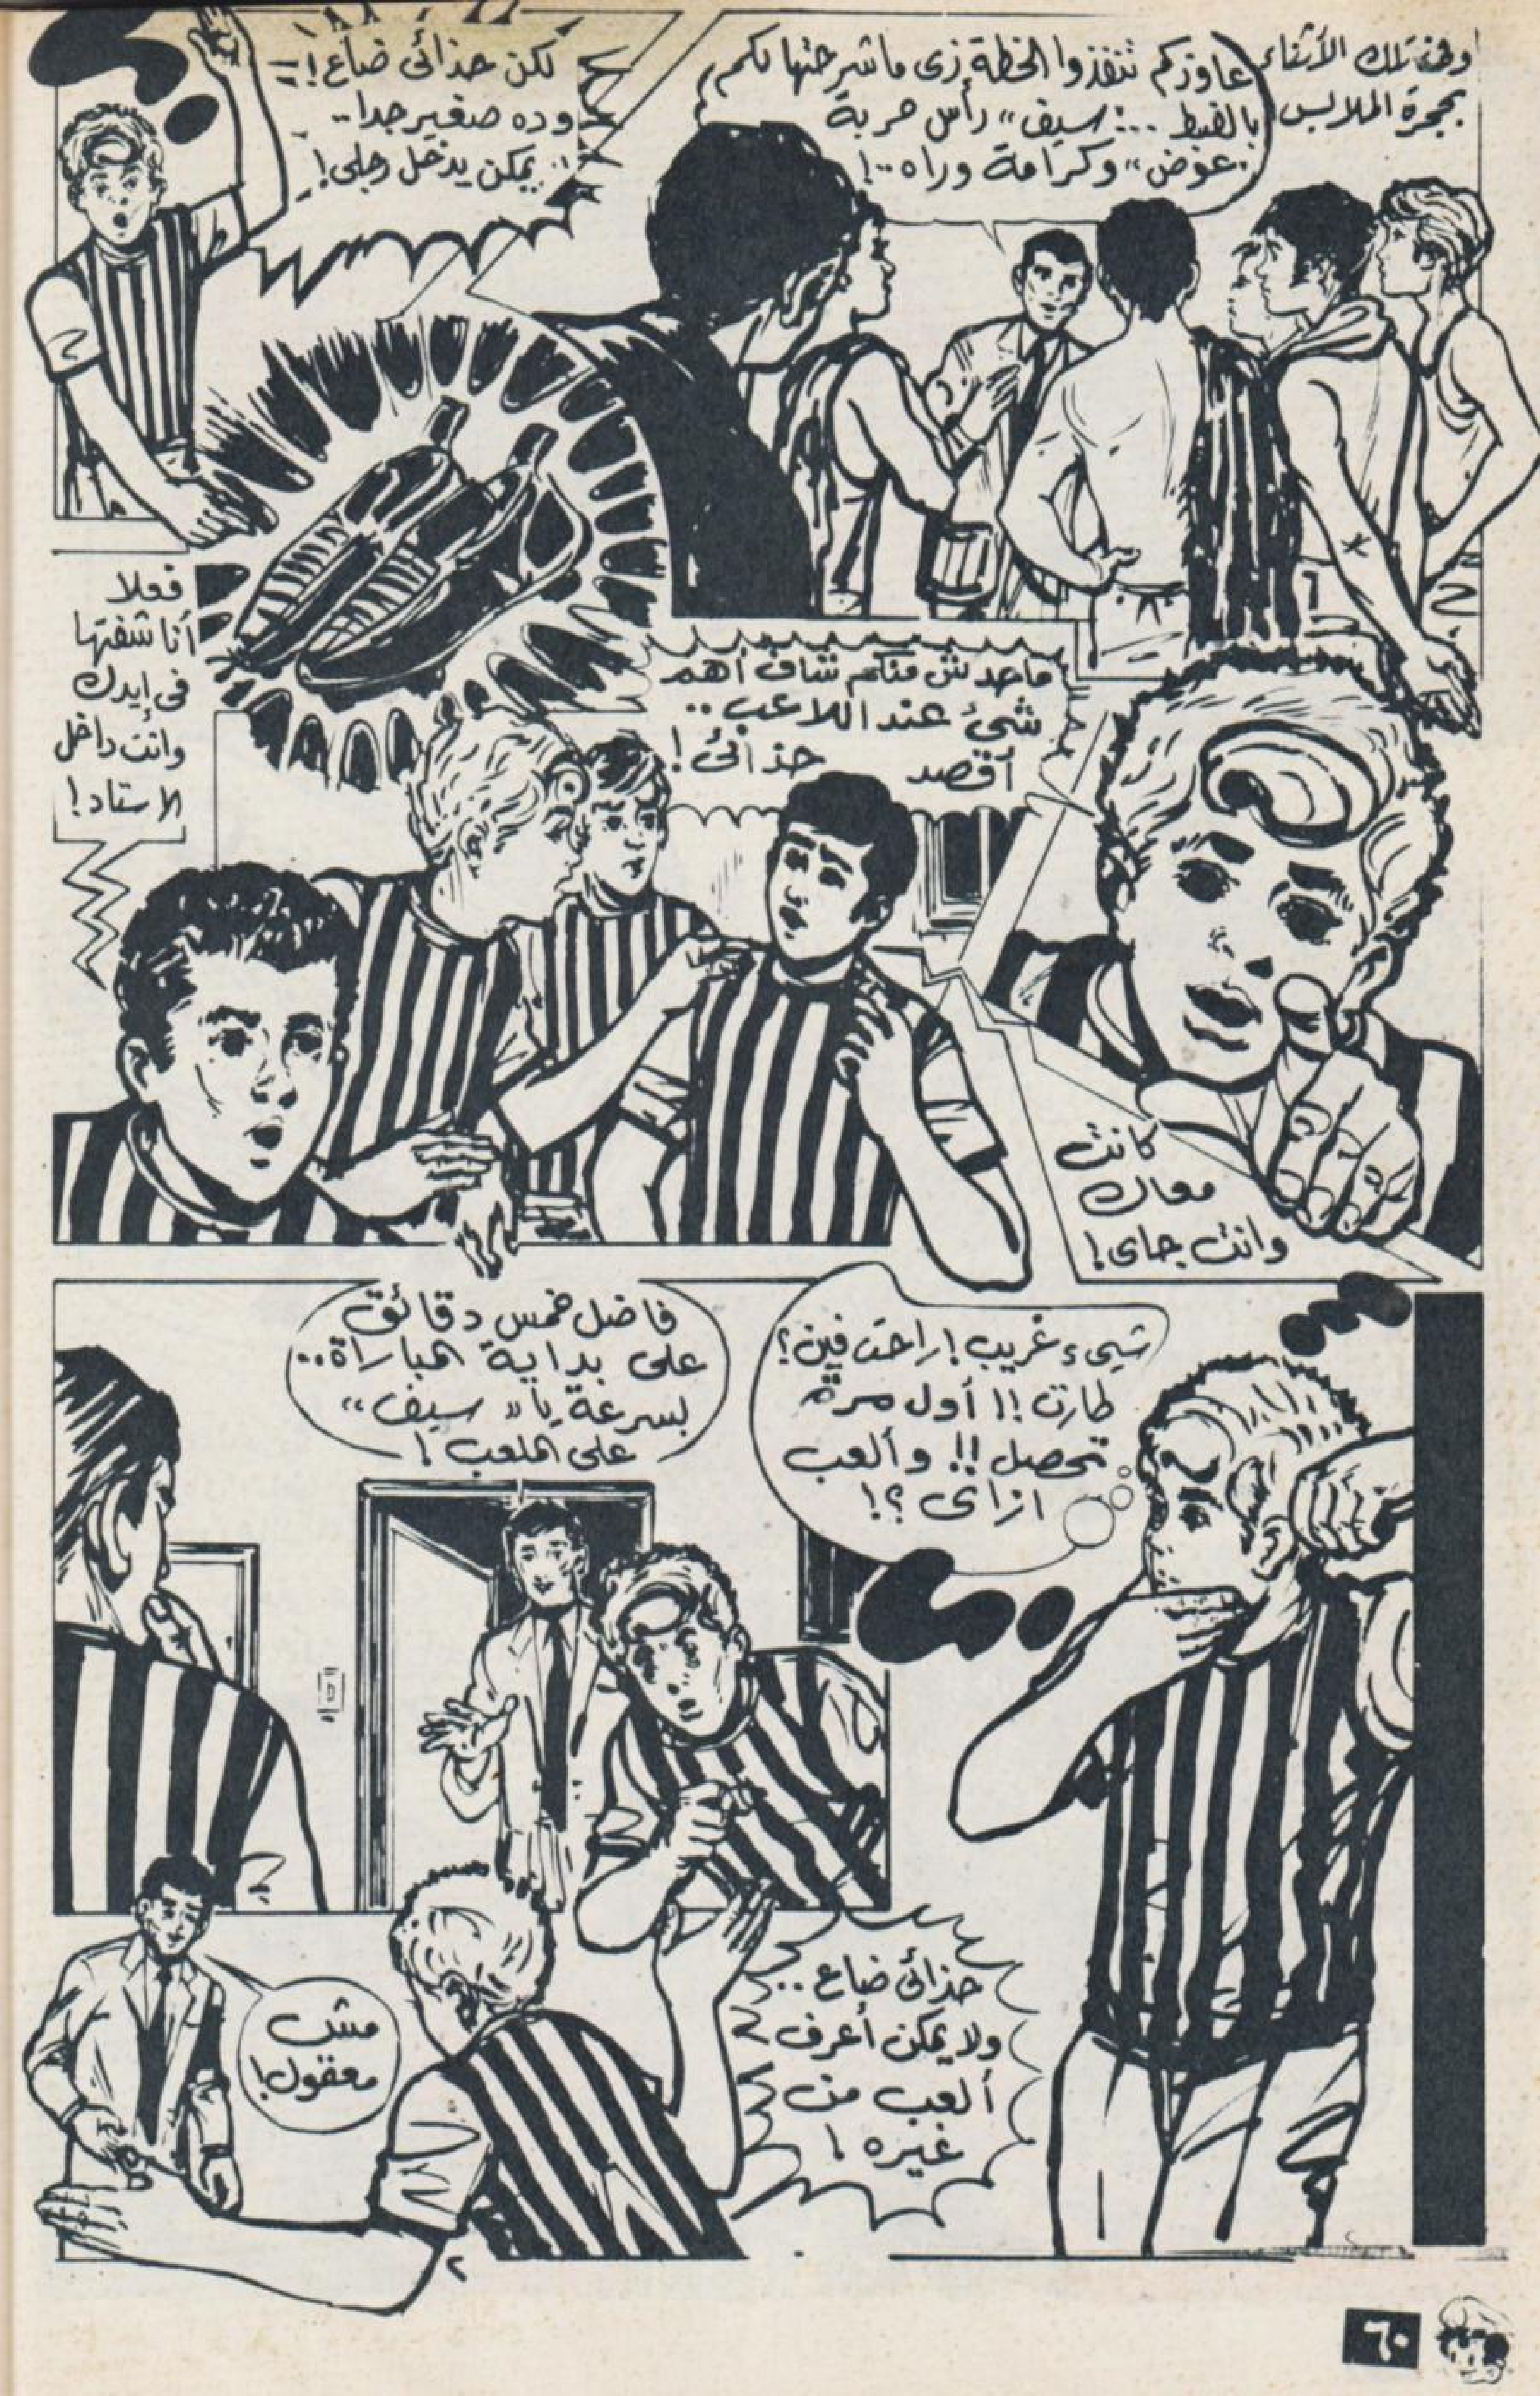 وفى تلك الأثناء
بحجرة الملابس
عاوزكم تنفذوا الخطة زى ما شرحتها لكم
بالضبط ... "سيف" رأس حربة
"عوض" وكرامة وراه ..!
لكن حذائى ضاع !
وده صغير جدا ..
يمكن يدخل رجلى !
ماحدش منكم شاف أهم
شىء عند اللاعب ..
أقصد حذائى !
فعلا
أنا شفتها
فى إيدك
وانت داخل
الاستاد !
كانت
معاك
وانت جاى !
شىء غريب ! راحت فين ؟
طارت !! أول مرة
تحصل !! وألعب
ازاى ؟!
فاضل خمس دقائق
على بداية المباراة ..
بسرعة يا "سيف"
على الملعب !
حذائى ضاع ..
ولا يمكن أعرف
ألعب من
غيره !
مش
معقول !
٦٠